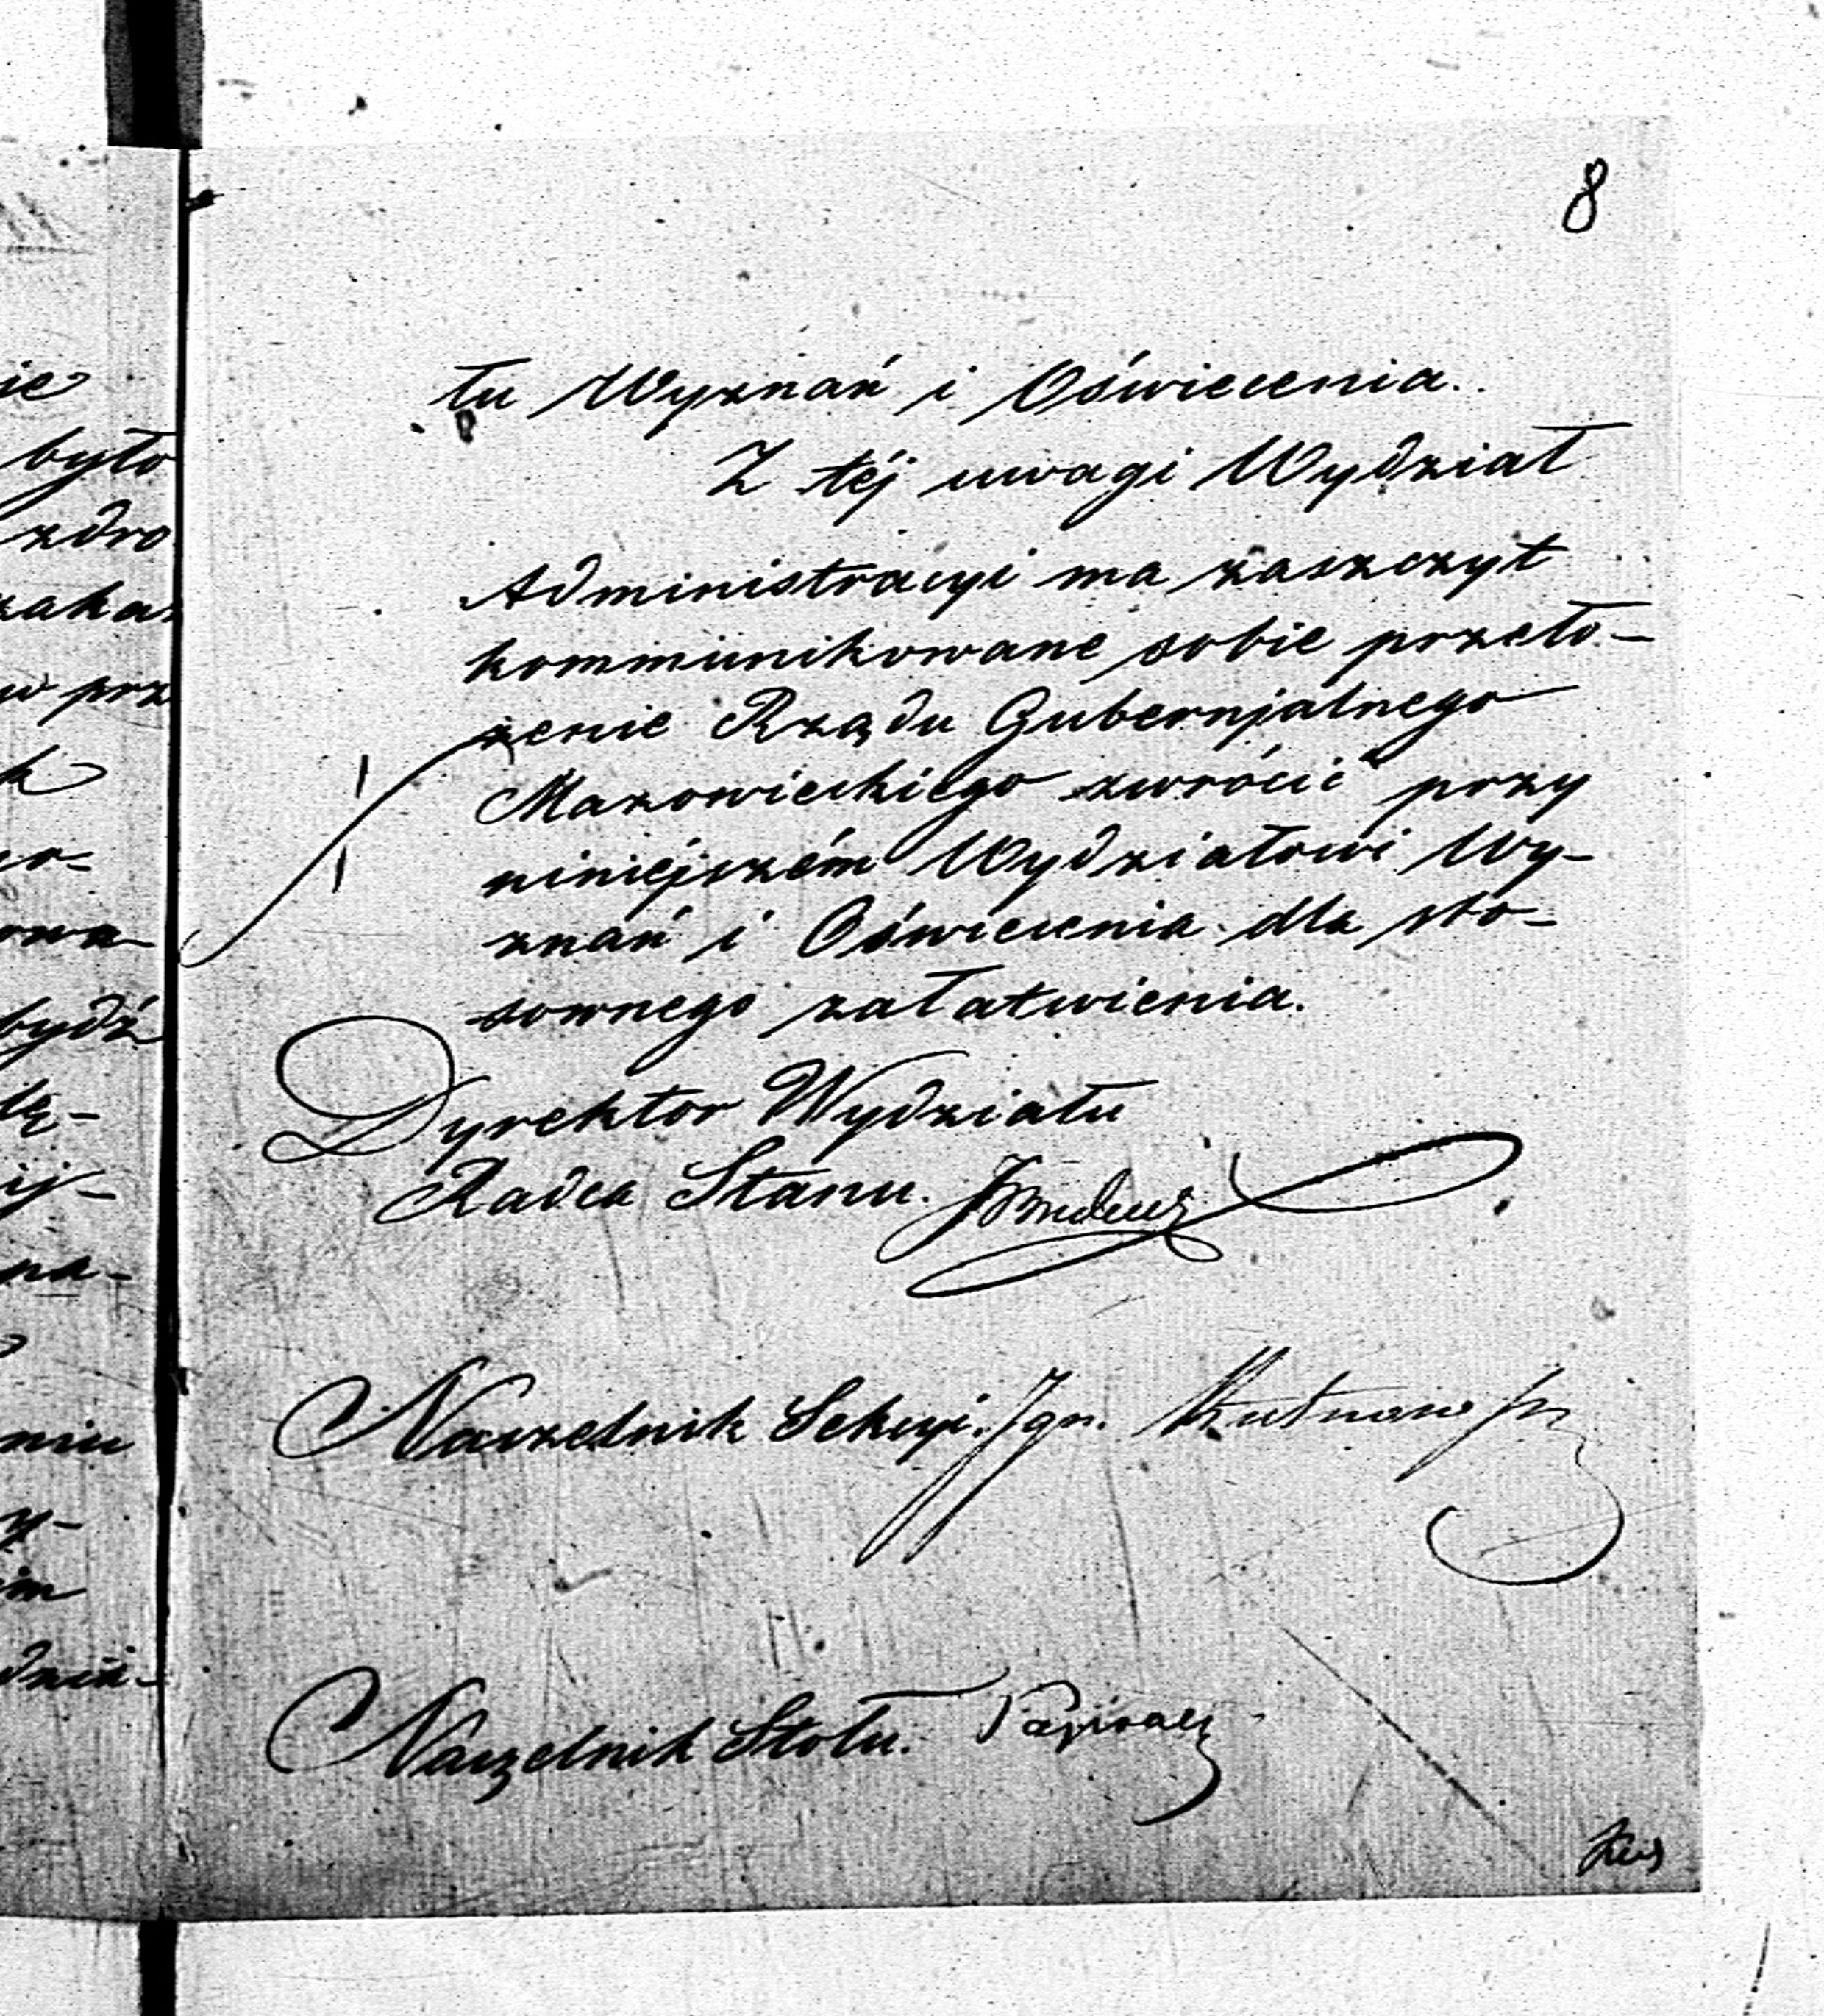 8
łu Wyznań i Oświecenia.
Z téj uwagi Wydział
Administracyi ma zaszczyt
kommunikowane sobie przeło-
żenie Rządu Gubernjalnego
Mazowieckiego zwrócić przy
niniejszém Wydziałowi Wy-
znań i Oświecenia dla sto-
sownego załatwienia.
Dyrektor Wydziału
Radca Stanu.
Naczelnik Sekcyi. Ign.
Naczelnik Stołu.
ie
było
zdro
zaka
w prz
k
owa
bydź
ij-
pa-
niu
im